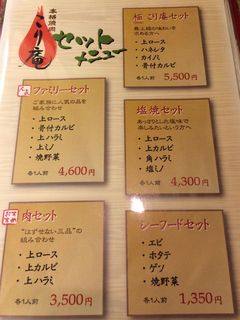 本格焼肉
こり庵
セット
メニュー
極 こり庵セット
最上級の味わいを
求める方へ
・上ロース
・ハネシタ
・カイノミ
・骨付カルビ
各1人前
5,500円
ファミリーセット
ご家族に人気の品を
組み合わせ
・上ロース
・骨付カルビ
・上ハラミ
・上ミノ
・焼野菜
各1人前
4,600円
塩焼セット
あっさりとした塩味で
楽しみたいという方へ
・上ロース
・上カルビ
・角ハラミ
・塩ミノ
各1人前
4,300円
肉セット
“はずせない三品”の
組み合わせ
・上ロース
・上カルビ
・上ハラミ
各1人前
3,500円
シーフードセット
・エビ
・ホタテ
・ゲソ
・焼野菜
各1人前
1,350円